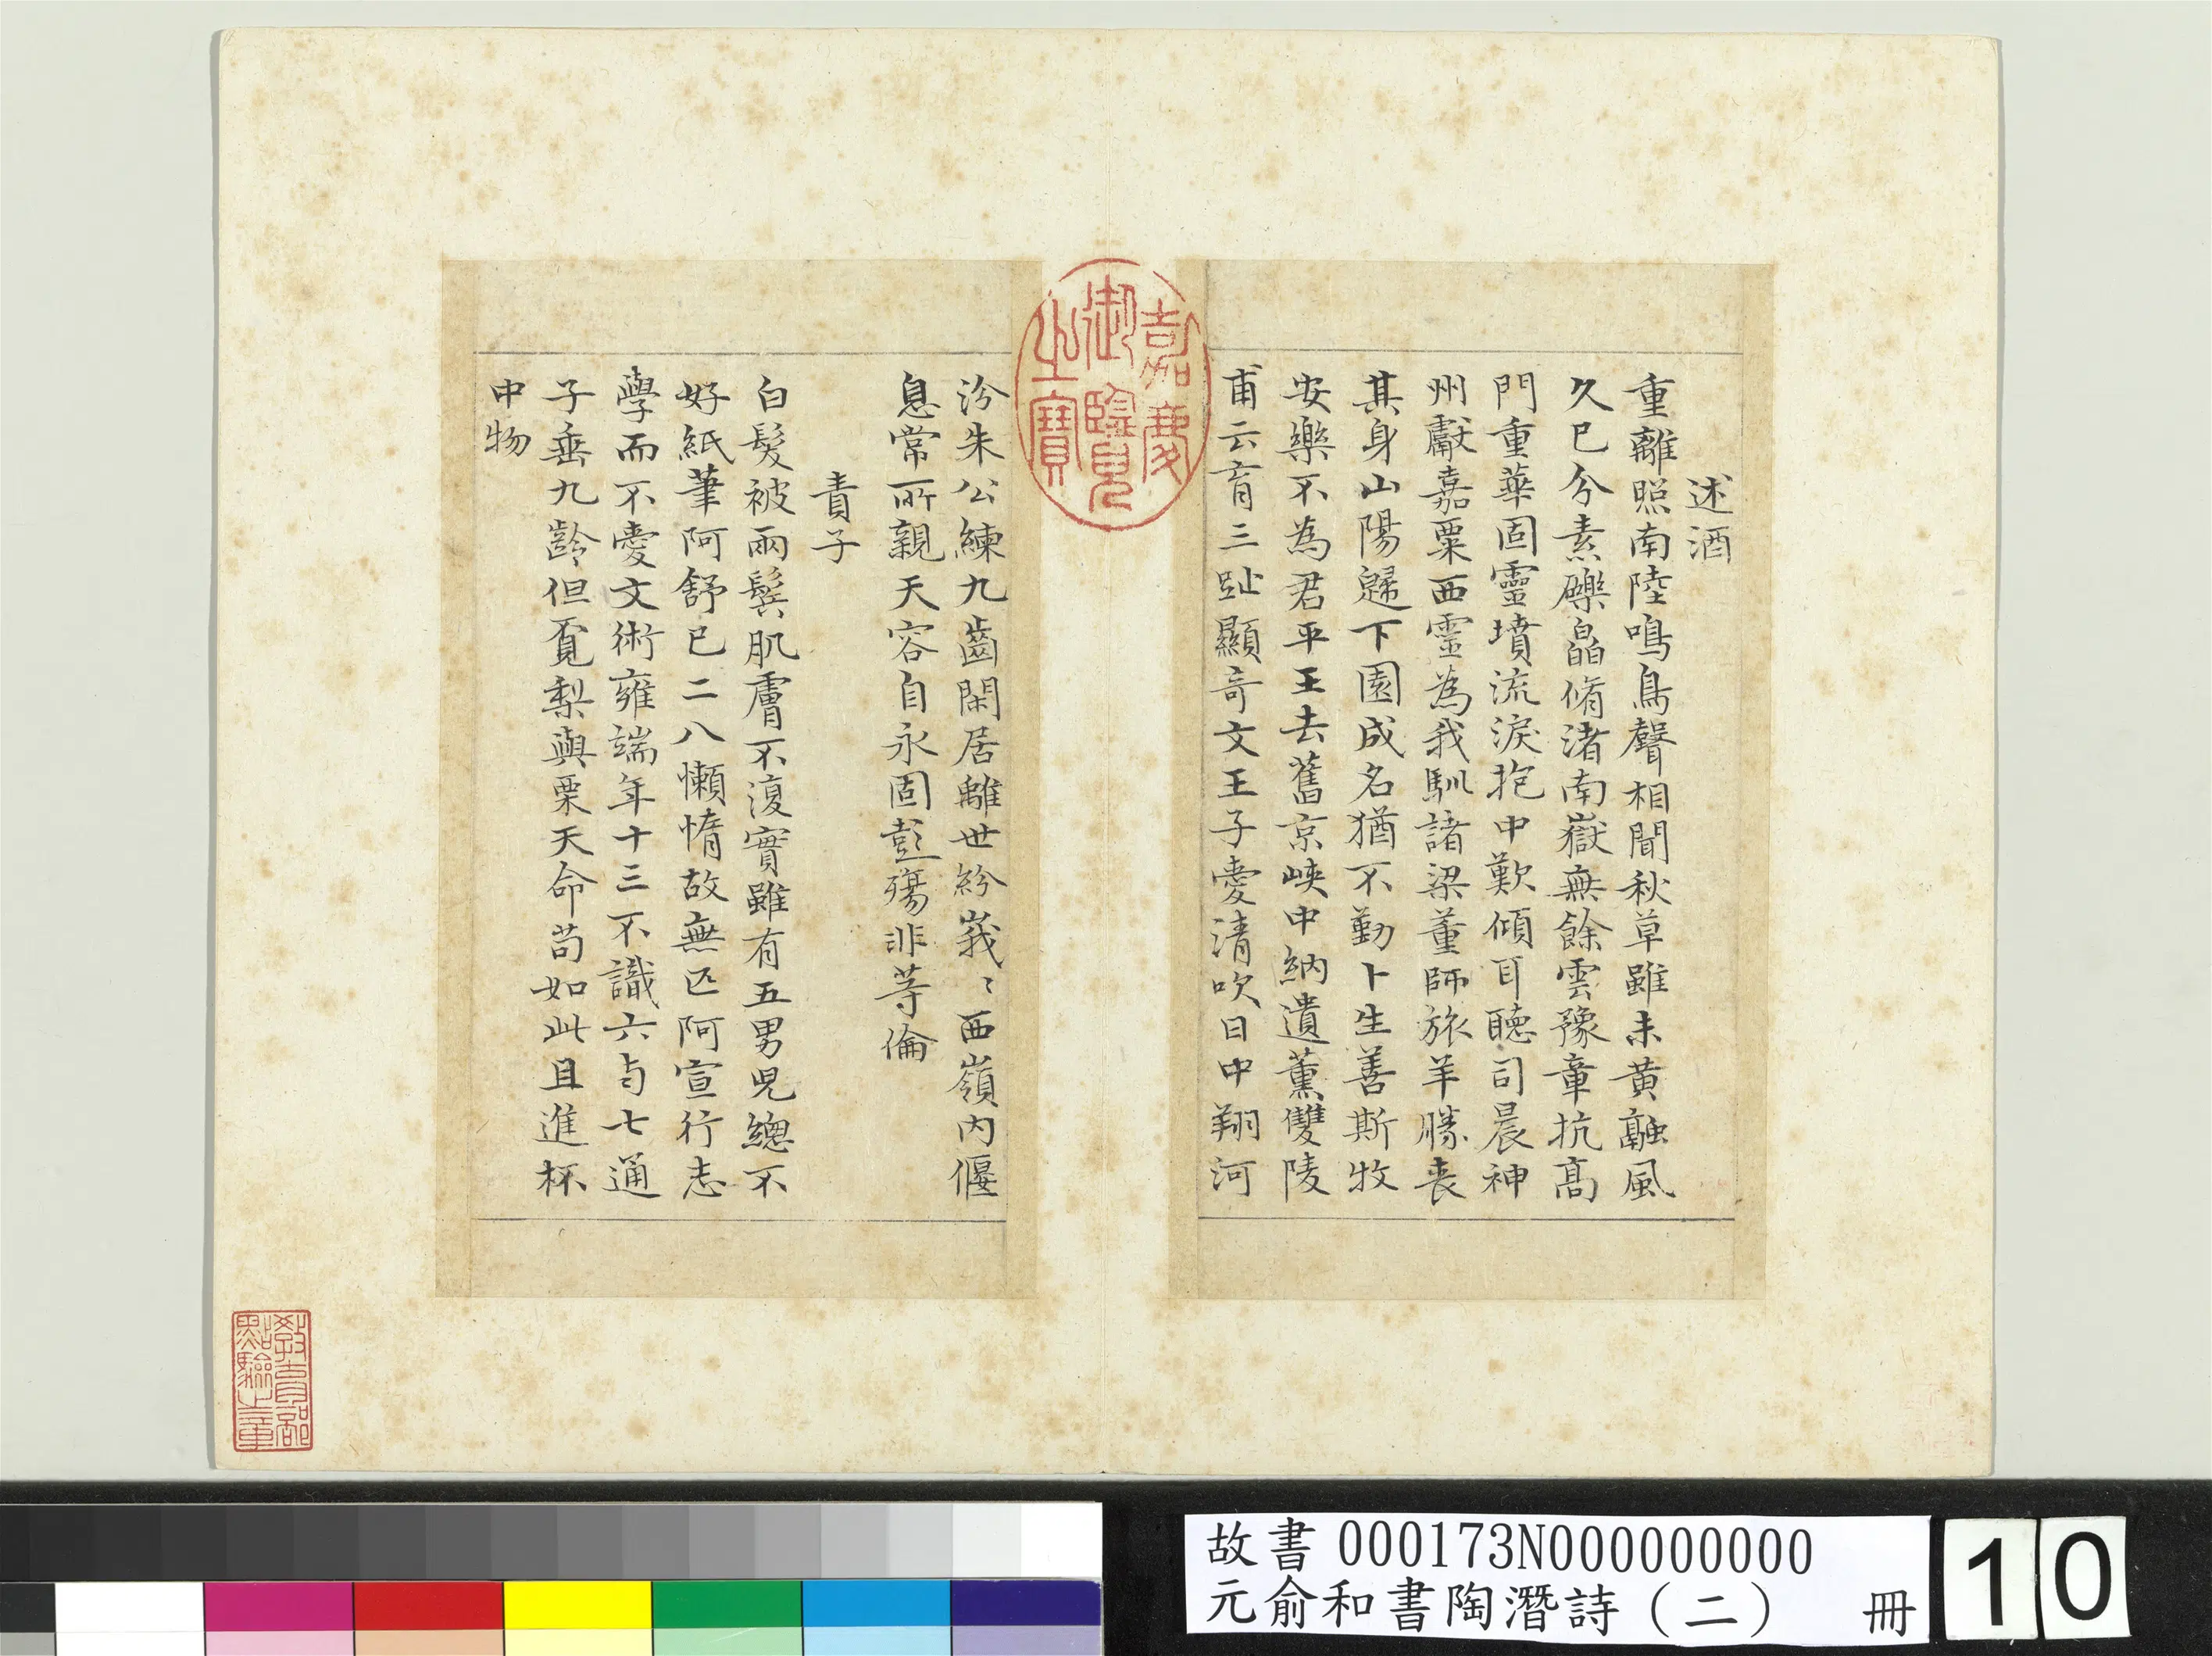 述酒
重離照南陸鳴鳥聲相聞秋草雖未黄融風
久已分素礫皛脩渚南嶽無餘雲豫章抗髙
門重華固靈墳流淚抱中歎傾耳聽司晨神
州獻嘉粟西靈為我馴諸梁董師旅羊勝喪
其身山陽歸下園成名猶不勤卜生善斯牧
安樂不為君平王去舊京峽中納遺薰雙陵
甫云育三趾顯奇文王子愛清吹日中翔河
汾朱公練九齒閑居離世紛峩〻西嶺内偃
息常所親天容自永固彭殤非等倫
責子
白髮被兩鬢肌膚不復實雖有五男兒總不
好紙筆阿舒已二八懶惰故無匹阿宣行志
學而不愛文術雍端年十三不識六与七通
子垂九齡但覔梨與栗天命苟如此且進杯
中物
嘉慶
御覽
之寶
教育部
點驗之章
故書 000173N000000000
元俞和書陶潛詩（二） 冊
10